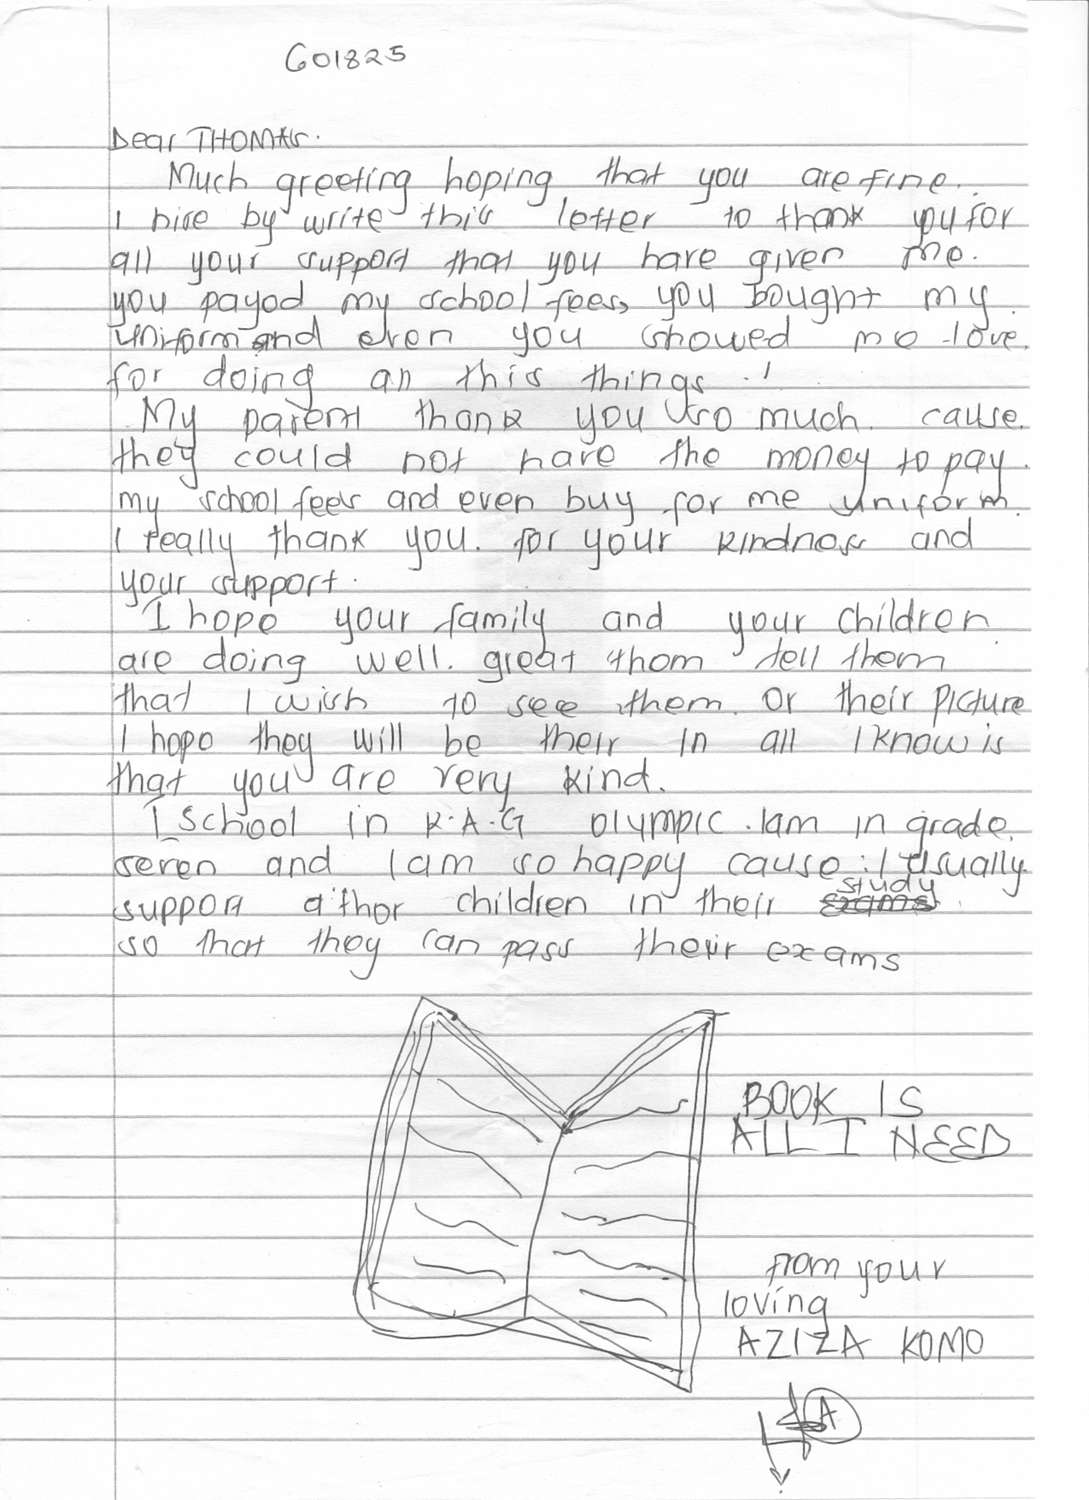 G01825
Dear THOMAS.
Much greeting hoping that you are fine.
I hire by write this letter to thank you for
all your support that you have given me.
you payed my school fees, you bought my
uniform and even you showed me love.
for doing all this things. !
My parent thank you so much. cause.
they could not have the money to pay.
my school fees and even buy for me uniform.
I really thank you. for your kindness and
your support.
I hope your family and your children
are doing well. great them tell them
that I wish to see them. or their picture
I hope they will be their in all I know is
that you are very kind.
I school in K.A.G olympic. Iam in grade.
seven and I am so happy cause: I usually
support other children in their study
so that they can pass their exams
BOOK IS
ALL I NEED
from your
loving
AZIZA KOMO
A